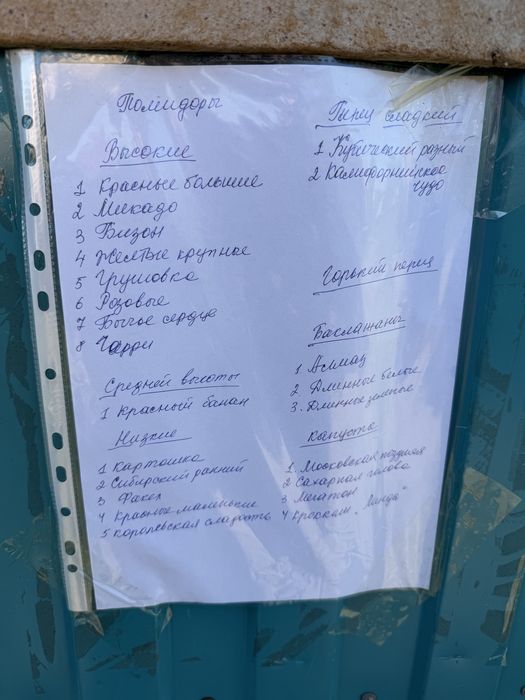 Помидоры
Высокие
1 Красные большие
2 Микадо
3 Бизон
4 Желтые крупные
5 Грушовка
6 Розовые
7 Бычье сердце
8 Гарри
Средней высоты
1 Красный банан
Низкие
1 Картошка
2 Сибирский ранний
3 Факел
4 Красные маленькие
5 Королевская сладость
Перец сладкий
1 Купеческий разный
2 Калифорнийское
чудо
Горький перец
Баклажаны
1 Алмаз
2 Длинные белые
3. Длинные
Капуста
1. Московская поздняя
2 Сахарная голова
3 Мегатон
4 "Линда"